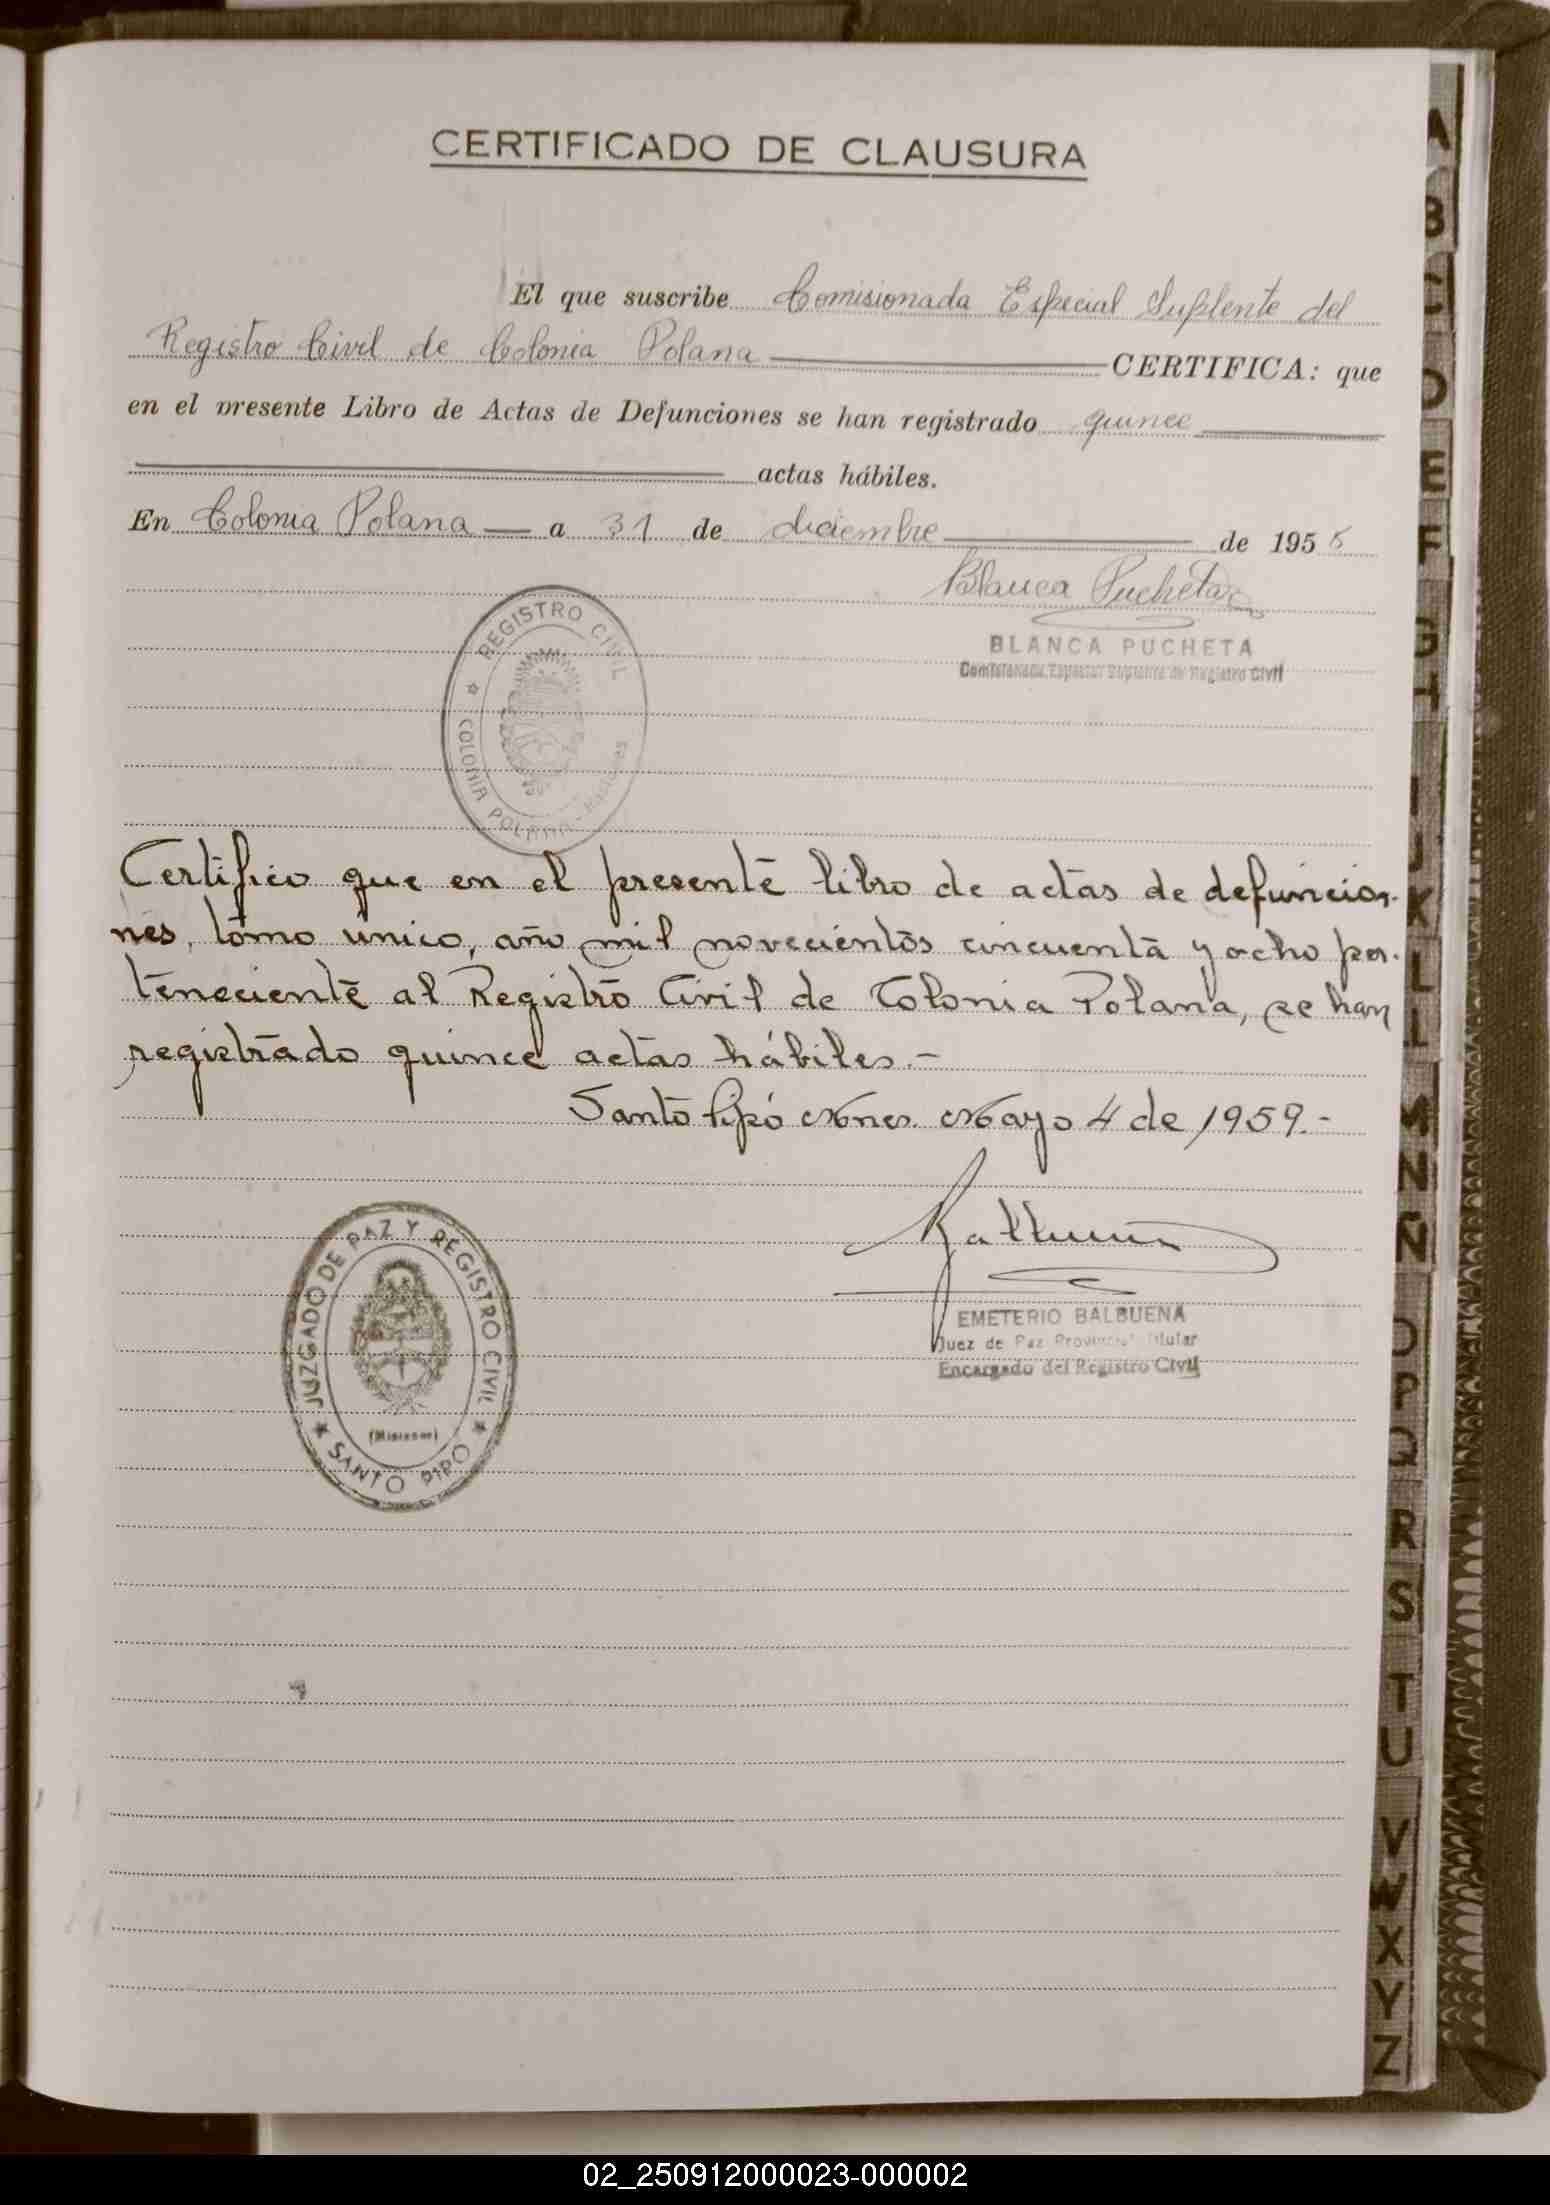 CERTIFICADO DE CLAUSURA
El que suscribe Comisionada Especial Suplente del
Registro Civil de Colonia Polana CERTIFICA: que
en el presente Libro de Actas de Defunciones se han registrado quince
actas hábiles.
En Colonia Polana a 31 de diciembre de 1958
Blanca Pucheta
BLANCA PUCHETA
Comisionada Especial Suplente de Registro Civil
REGISTRO CIVIL
COLONIA POLANA - Misiones
Certifico que en el presente libro de actas de defuncio-
nes, tomo único, año mil novecientos cincuenta y ocho per-
teneciente al Registro Civil de Colonia Polana, se han
registrado quince actas hábiles.-
Santo Pipó Mnes. Mayo 4 de 1959.-
EMETERIO BALBUENA
Juez de Paz Provincial Titular
Encargado del Registro Civil
JUZGADO DE PAZ Y REGISTRO CIVIL
(Misiones)
SANTO PIPO
A
B
C
D
E
F
G
H
I
J
K
L
LL
M
N
Ñ
O
P
Q
R
S
T
U
V
W
X
Y
Z
02_250912000023-000002